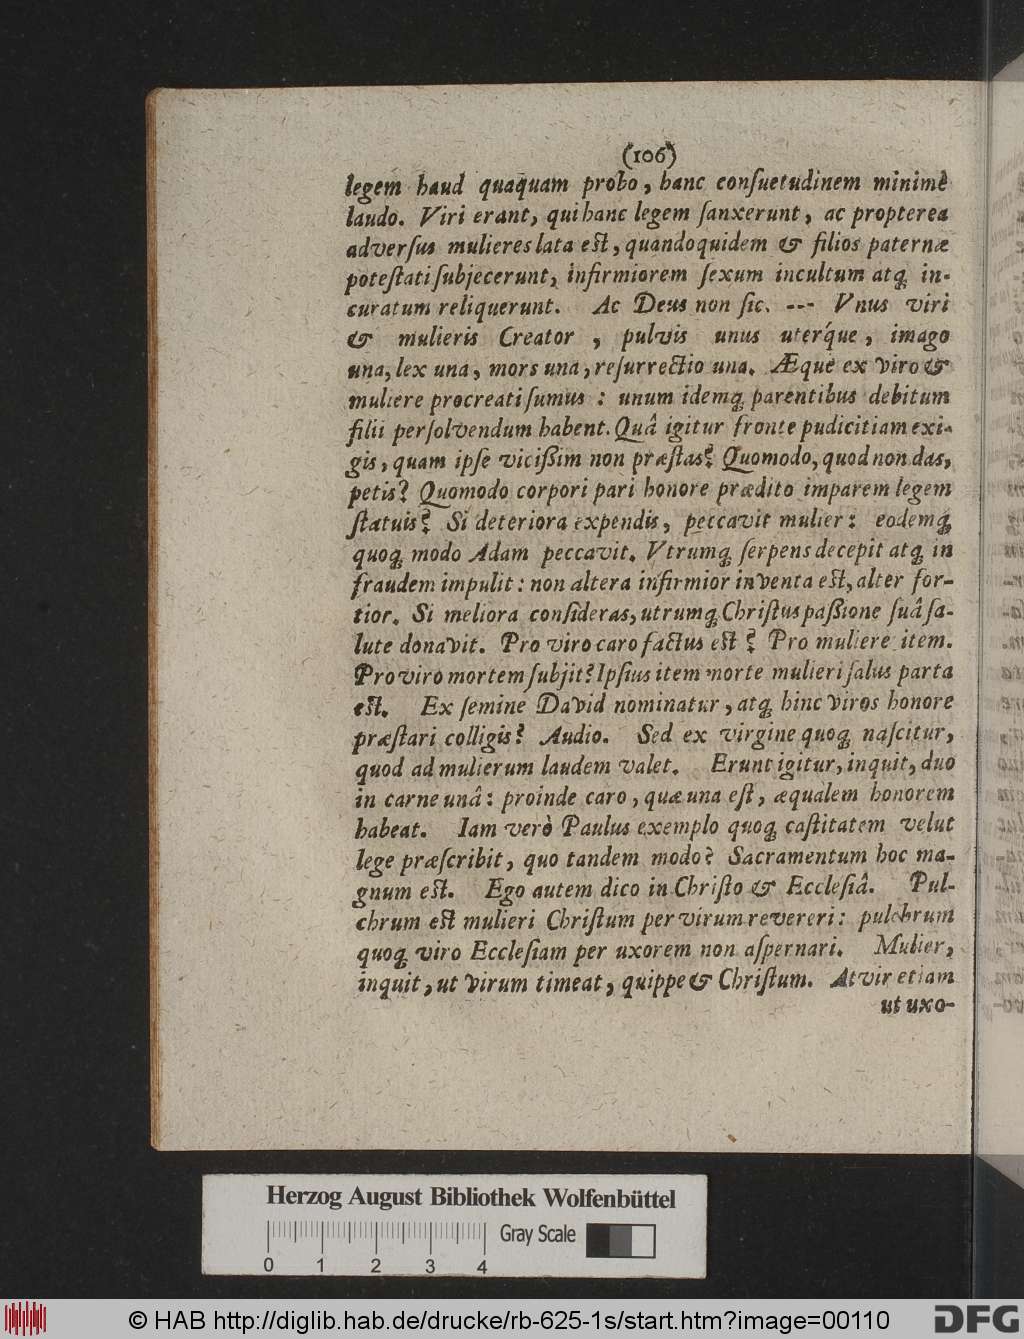 (106)
legem haud quaquam probo, hanc conſuetudinem minimè
laudo. Viri erant, qui hanc legem ſanxerunt, ac propterea
adverſus mulieres lata eſt, quandoquidem & filios paternæ
poteſtati ſubjecerunt, infirmiorem ſexum incultum atq; in-
curatum reliquerunt. Ac Deus non ſic. --- Vnus viri
& mulieris Creator, pulvis unus uterq́ue, imago
una, lex una, mors una, reſurrectio una. Æquè ex viro &
muliere procreati ſumus: unum idemq; parentibus debitum
filii perſolvendum habent. Quâ igitur fronte pudicitiam exi-
gis, quam ipſe viciſſim non præſtas? Quomodo, quod non das,
petis? Quomodo corpori pari honore prædito imparem legem
ſtatuis? Si deteriora expendis, peccavit mulier: eodemq;
quoq; modo Adam peccavit. Vtrumq; ſerpens decepit atq; in
fraudem impulit: non altera infirmior inventa eſt, alter for-
tior. Si meliora conſideras, utrumq; Chriſtus paſſione ſuâ ſa-
lute donavit. Pro viro caro factus eſt? Pro muliere item.
Pro viro mortem ſubjit? Ipſius item morte mulieri ſalus parta
eſt. Ex ſemine David nominatur, atq; hinc viros honore
præſtari colligis? Audio. Sed ex virgine quoq; naſcitur,
quod ad mulierum laudem valet. Erunt igitur, inquit, duo
in carne unâ: proinde caro, quæ una eſt, æqualem honorem
habeat. Iam verò Paulus exemplo quoq; caſtitatem velut
lege præſcribit, quo tandem modo? Sacramentum hoc ma-
gnum eſt. Ego autem dico in Chriſto & Eccleſiâ. Pul-
chrum eſt mulieri Chriſtum per virum revereri: pulchrum
quoq; viro Eccleſiam per uxorem non aſpernari. Mulier,
inquit, ut virum timeat, quippe & Chriſtum. At vir etiam
ut uxo-
Herzog August Bibliothek Wolfenbüttel
Gray Scale
0 1 2 3 4
© HAB http://diglib.hab.de/drucke/rb-625-1s/start.htm?image=00110
DFG